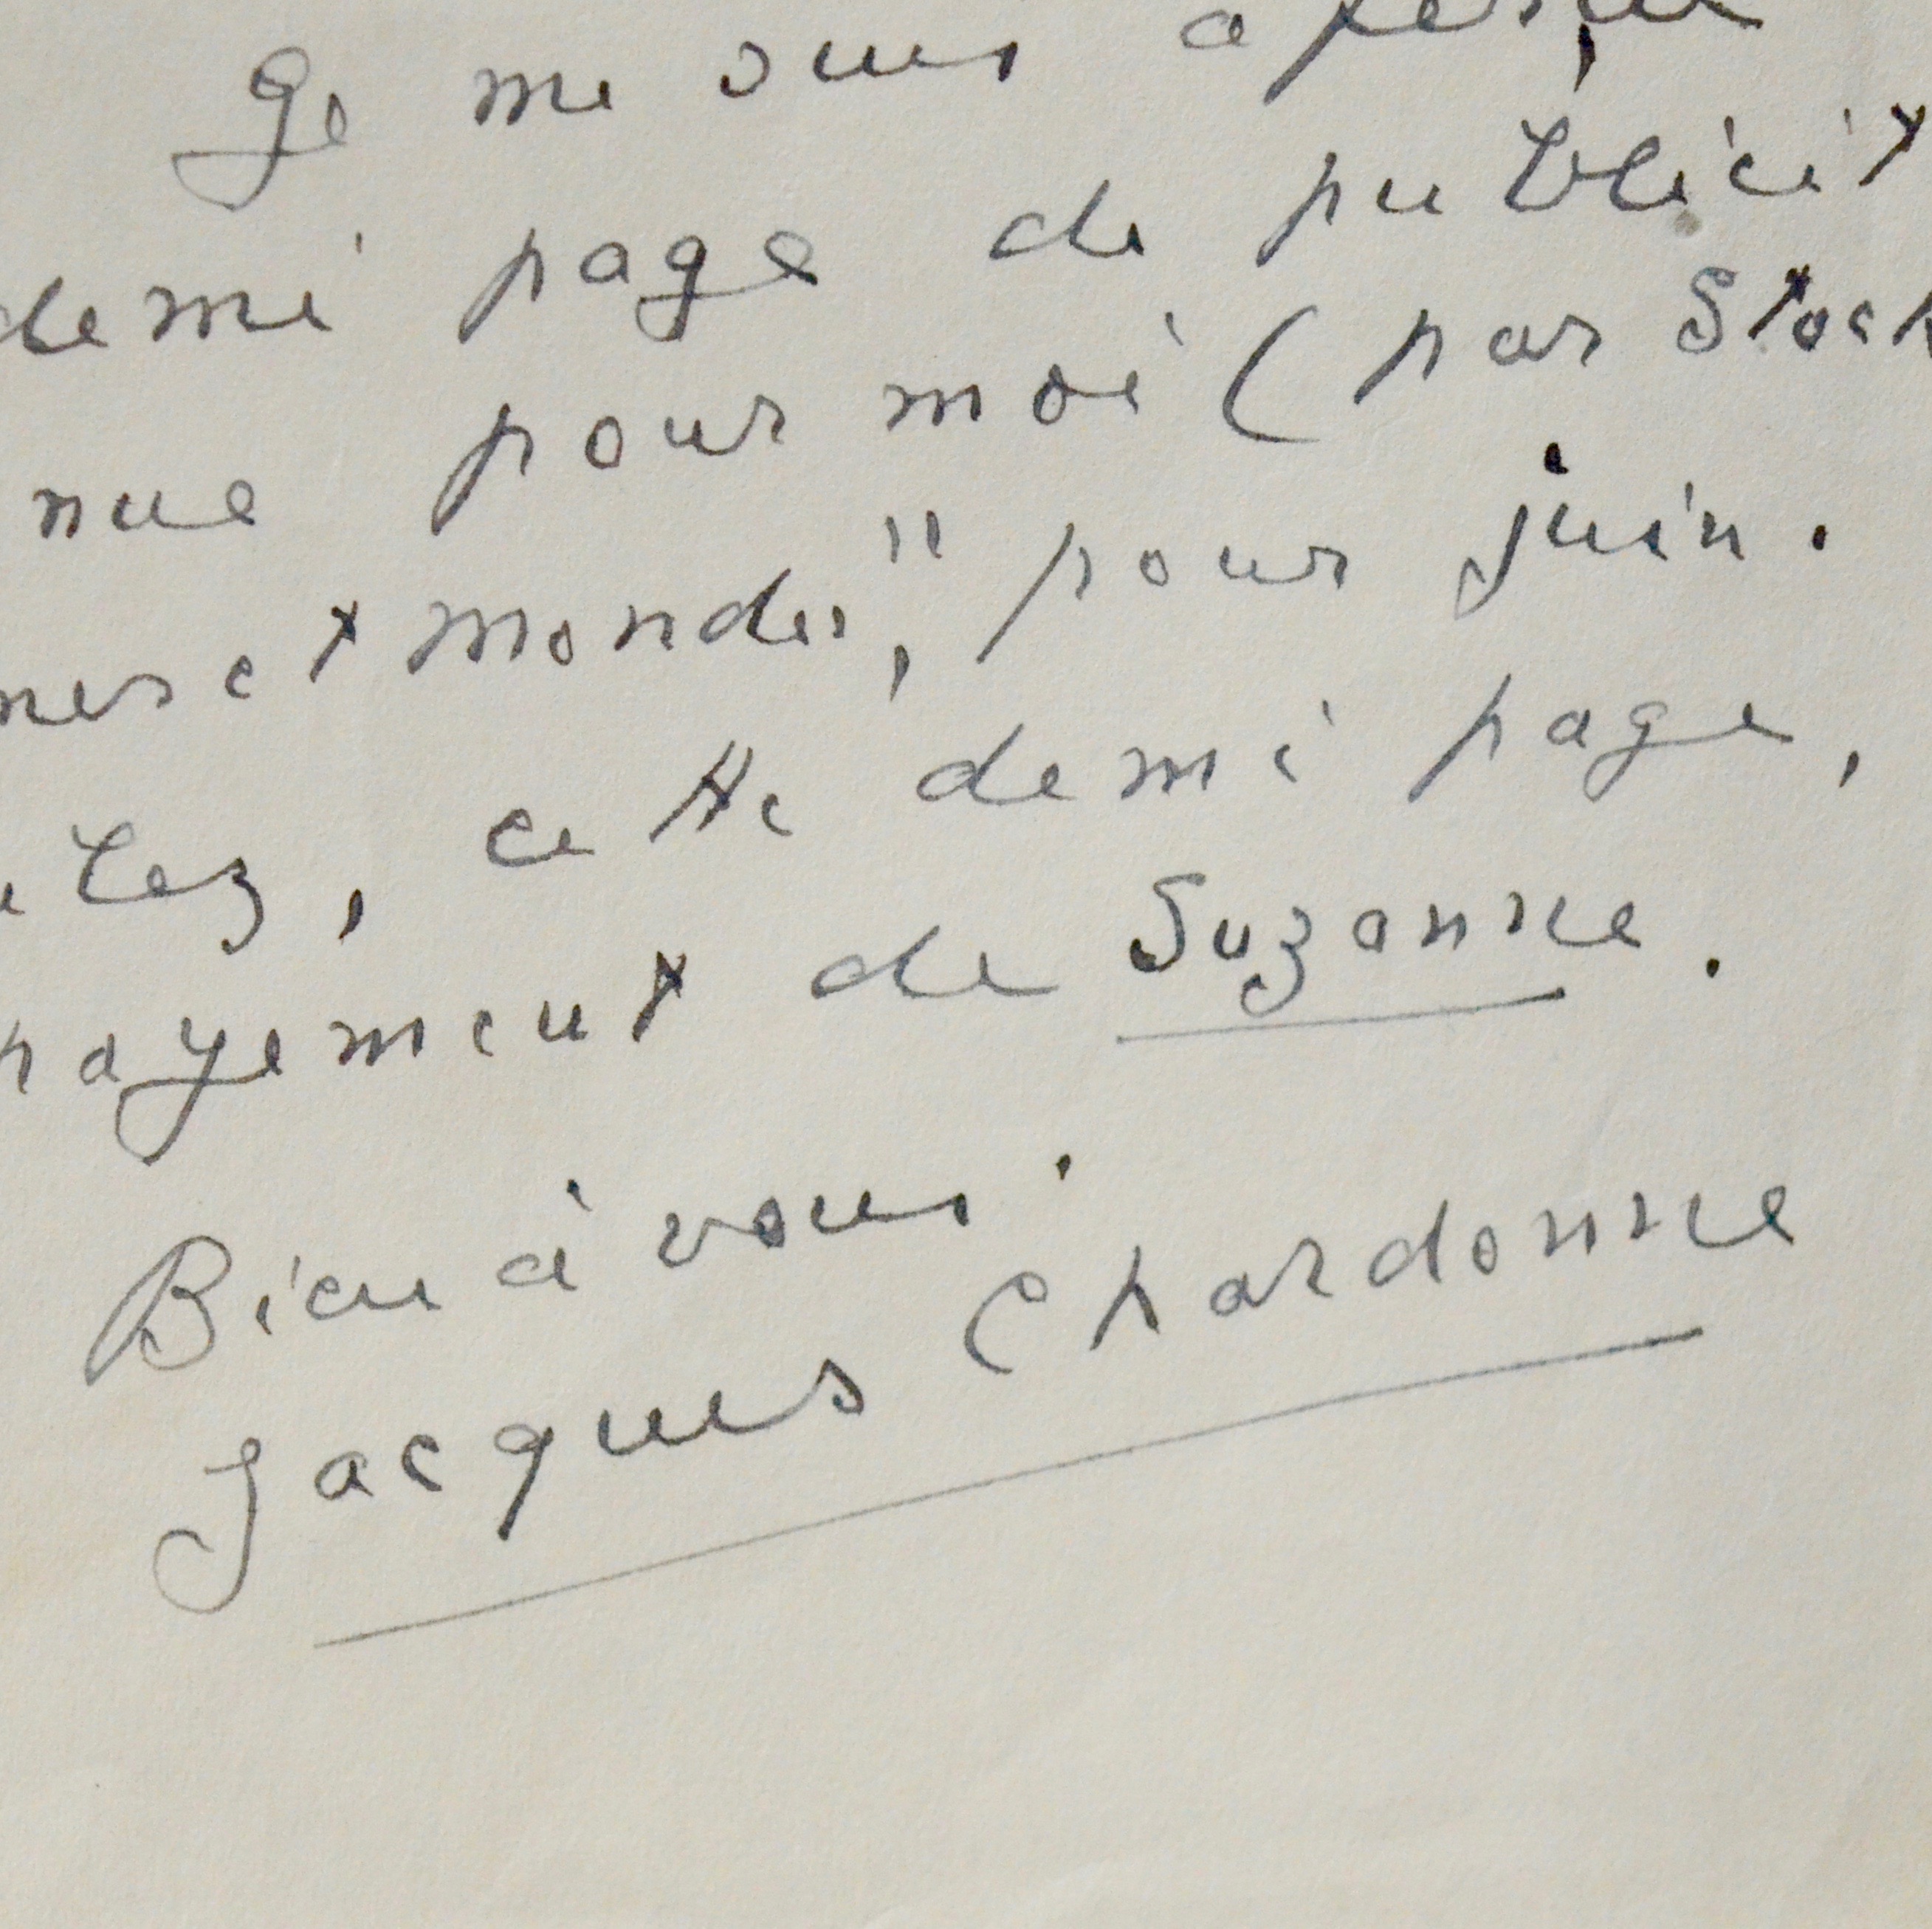 Je me suis aperçu
demi page de publicit
nue pour moi (par Stock
et mondes", pour juin.
lez, cette demi page,
payement de Suzanne.
Bien à vous.
Jacques Chardonne